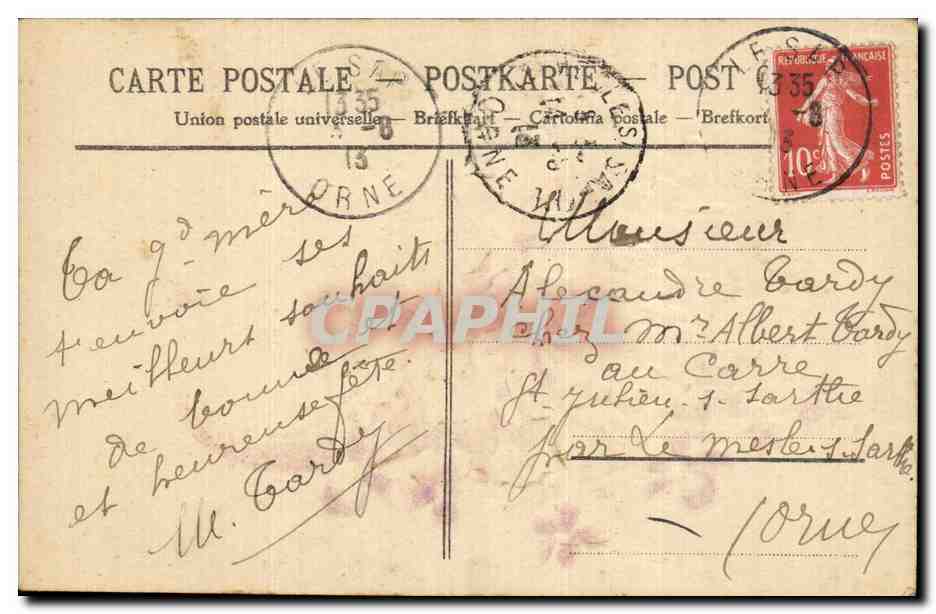 CARTE POSTALE — POSTKARTE — POST
Union postale universelle — Briefkaart — Cartolina postale — Brefkort
LE SAP
13 35
-8
13
ORNE
ORNE
LE SAP
13 35
-8
13
ORNE
REPUBLIQUE FRANÇAISE
10 c
POSTES
Ta gd mère
t'envoie ses
meilleurs souhaits
de bonne et
et heureuse fête.
M. Tardy
Monsieur
Alexandre Tardy
chez Mr Albert Tardy
au Carre
St Julien s Sarthe
par Le Mesle s Sarthe
(Orne)
CPAPHIL